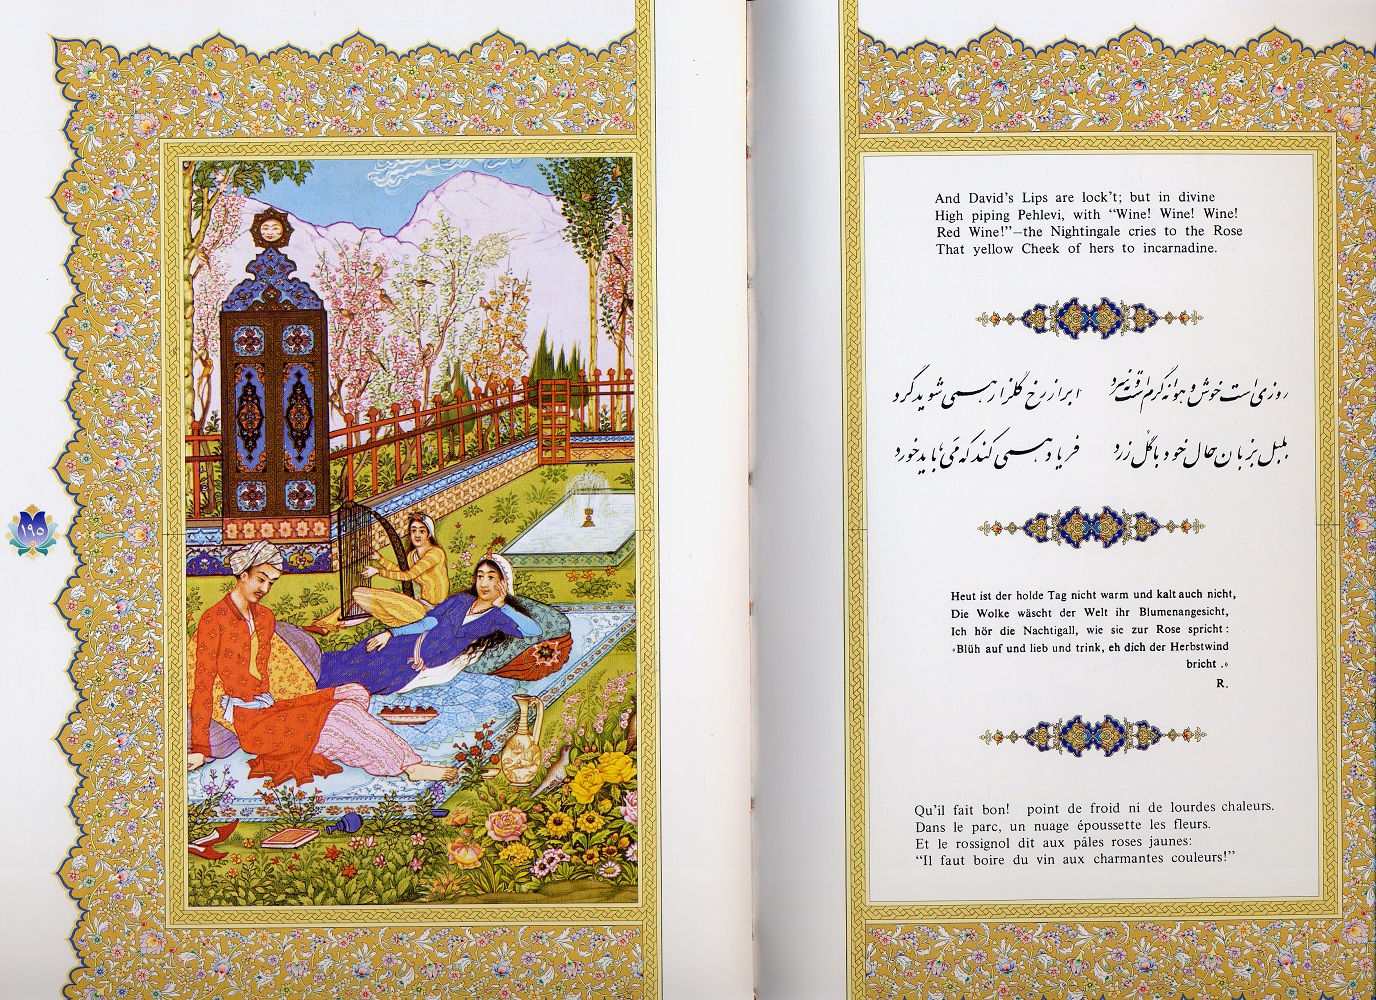 ۱۹۵
And David's Lips are lock't; but in divine
High piping Pehlevi, with “Wine! Wine! Wine!
Red Wine!”—the Nightingale cries to the Rose
That yellow Cheek of hers to incarnadine.
روزی است خوش و هوا نه گرم است و نه سرد ابر از رخ گلزار همی شوید گرد
بلبل بزبان حال خود با گل زرد فریاد همی کند که می باید خورد
Heut ist der holde Tag nicht warm und kalt auch nicht,
Die Wolke wäscht der Welt ihr Blumenangesicht,
Ich hör die Nachtigall, wie sie zur Rose spricht:
»Blüh auf und lieb und trink, eh dich der Herbstwind
bricht.«
R.
Qu'il fait bon! point de froid ni de lourdes chaleurs.
Dans le parc, un nuage époussette les fleurs.
Et le rossignol dit aux pâles roses jaunes:
“Il faut boire du vin aux charmantes couleurs!”